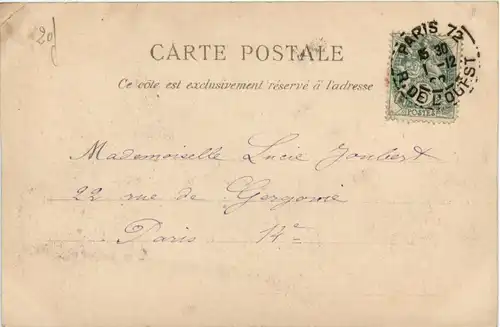 20f
CARTE POSTALE
Ce côté est exclusivement réservé à l'adresse
PARIS 72
R. DE L'OUEST
POSTES
Mademoiselle Lucie Joubert
22 rue de Gergovie
Paris 14e